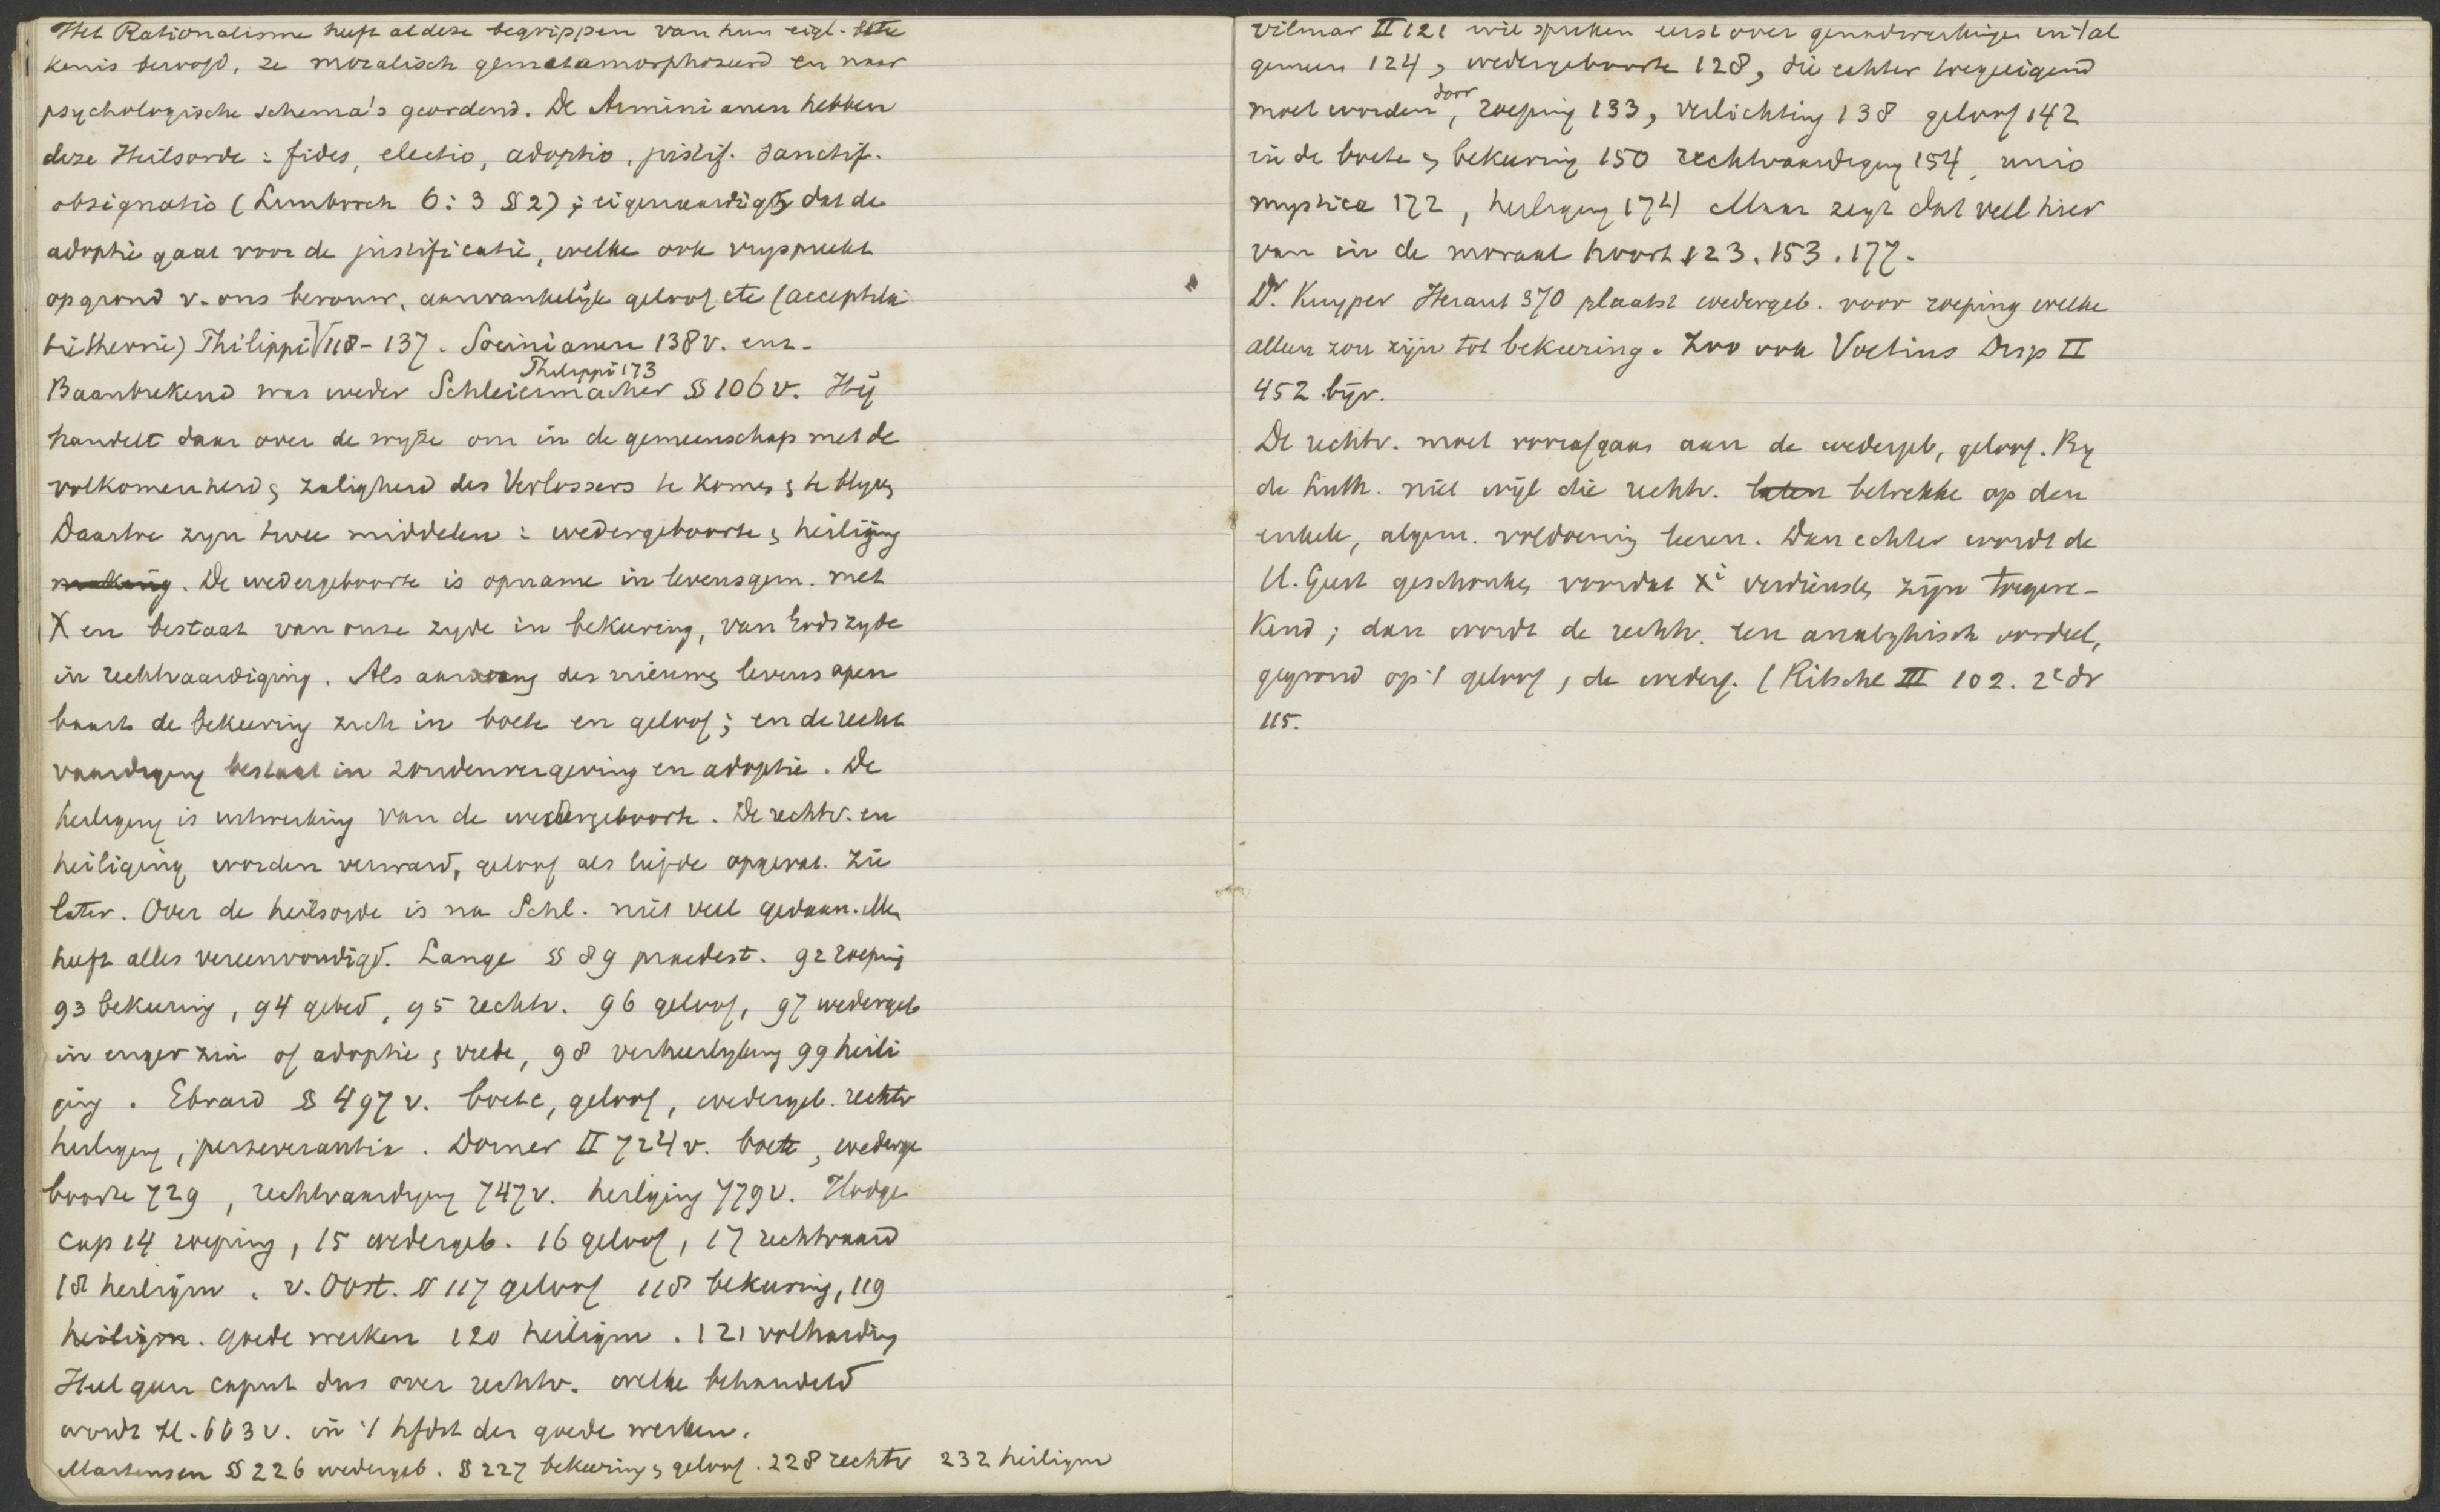 Het Rationalisme heeft al deze begrippen van hun eigl. bete
kenis beroofd, ze moralisch gemetamorphoseerd en naar
psychologische schema's geordend. De Arminianen hebben
deze Heilsorde: fides, electio, adoptio, justif. sanctif.
obsignatio (Limborch 6:3 § 2); eigenaardig is dat de
adoptie gaat voor de justificatie, welke ook vrijspreekt
op grond v. ons berouw, aanvankelijk geloof etc (acceptila
tietheorie) Philippi V 118-137. Socinianen 138 v. enz.
Philippi 173
Baanbrekend was weder Schleiermacher §§ 106 v. Hij
handelt daar over de wijze om in de gemeenschap met de
volkomenheid & zaligheid des Verlossers te komen & te blijven
Daartoe zijn twee middelen: wedergeboorte & heiliging
making. De wedergeboorte is opname in levensgem. met
X en bestaat van onze zijde in bekeering, van Gods zijde
in rechtvaardiging. Als aanvang des nieuwen levens open
baart de bekeering zich in boete en geloof; en de recht
vaardiging bestaat in zondenvergeving en adoptie. De
heiliging is uitwerking van de wedergeboorte. De rechtv. en
heiliging worden verward, geloof als liefde opgevat. Zie
later. Over de heilsorde is na Schl. niet veel gedaan. Men
heeft alles vereenvoudigd. Lange §§ 89 praedest. 92 roeping
93 bekeering, 94 gebed, 95 rechtv. 96 geloof, 97 wedergeb
in enger zin of adoptie & vrede, 98 verheerlijking 99 heili
ging. Ebrard § 497 v. boete, geloof, wedergeb. rechtv
heiliging, perseverantia. Dorner II 724 v. boete, wederge
boorte 729, rechtvaardiging 747 v. heiliging 779 v. Hodge
cap 14 roeping, 15 wedergeb. 16 geloof, 17 rechtvaard
18 heiligm. v. Oost. § 117 geloof 118 bekeering, 119
heiligm. goede werken 120 heiligm. 121 volharding
Heel geen caput dus over rechtv. welke behandeld
wordt bl. 663 v. in 't hfdst der goede werken.
Martensen §§ 226 wedergeb. § 227 bekeering & geloof. 228 rechtv 232 heiligm
Vilmar II 121 wil spreken eerst over genadewerkingen in 't al
gemeen 124, wedergeboorte 128, die echter toegeeigend
door
moet worden, roeping 133, verlichting 138 geloof 142
in de boete & bekeering 150 rechtvaardiging 154, unio
mystica 172, heiliging 174 Maar zegt dat veel hier
van in de moraal hoort 123. 153. 177.
Dr Kuyper Heraut 370 plaatst wedergeb. voor roeping welke
alleen zou zijn tot bekeering. Zoo ook Voetius Disp II
452 bijv.
De rechtv. moet voorafgaan aan de wedergeb, geloof. By
de Luth. niet wijl die rechtv. laten betrekke op den
enkele, algem. voldoening leeren. Dan echter wordt de
H. Geest geschonken voordat Xi verdiensten zijn toegere-
kend; dan wordt de rechtv. een analytisch oordeel,
gegrond op 't geloof, de wederg. (Ritschl III 102. 2e dr
115.